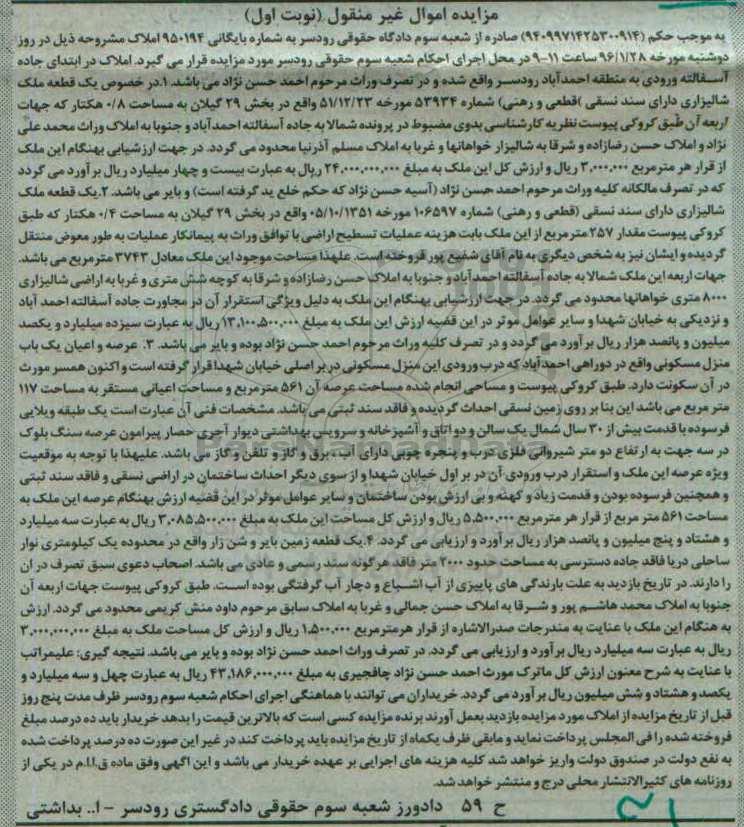 مزایده اموال غیر منقول (نوبت اول)
به موجب حکم (۹۴۰۹۹۷۱۴۲۵۳۰۰۹۱۴) صادره از شعبه سوم دادگاه حقوقی رودسر به شماره بایگانی ۹۵۰۱۹۴ املاک مشروحه ذیل در روز
دوشنبه مورخه ۹۶/۱/۲۸ ساعت ۱۱-۹ در محل اجرای احکام شعبه سوم حقوقی رودسر مورد مزایده قرار می گیرد. املاک در ابتدای جاده
آسفالته ورودی به منطقه احمدآباد رودسر واقع شده و در تصرف وراث مرحوم احمد حسن نژاد می باشد. ۱.در خصوص یک قطعه ملک
شالیزاری دارای سند نسقی )قطعی و رهنی) شماره ۵۳۹۳۴ مورخه ۵۱/۱۲/۲۳ واقع در بخش ۲۹ گیلان به مساحت ۰/۸ هکتار که جهات
اربعه آن طبق کروکی پیوست نظریه کارشناسی بدوی مضبوط در پرونده شمالا به جاده آسفالته احمدآباد و جنوبا به املاک وراث محمد علی
نژاد و املاک حسن رضازاده و شرقا به شالیزار خواهانها و غربا به املاک مسلم آذرنیا محدود می گردد. در جهت ارزشیابی بهنگام این ملک
از قرار هر مترمربع ۳,۰۰۰,۰۰۰ ریال و ارزش کل این ملک به مبلغ ۲۴,۰۰۰,۰۰۰,۰۰۰ ریال به عبارت بیست و چهار میلیارد ریال برآورد می گردد
که در تصرف مالکانه کلیه وراث مرحوم احمد حسن نژاد (آسیه حسن نژاد که حکم خلع ید گرفته است) و بایر می باشد. ۲.یک قطعه ملک
شالیزاری دارای سند نسقی (قطعی و رهنی) شماره ۱۰۶۵۹۷ مورخه ۰۵/۱۰/۱۳۵۱ واقع در بخش ۲۹ گیلان به مساحت ۰/۴ هکتار که طبق
کروکی پیوست مقدار ۲۵۷ متر مربع از این ملک بابت هزینه عملیات تسطیح اراضی با توافق وراث به پیمانکار عملیات به طور معوض منتقل
گردیده و ایشان نیز به شخص دیگری به نام آقای شفیع پور فروخته است. علیهذا مساحت موجود این ملک معادل ۳۷۴۳ مترمربع می باشد.
جهات اربعه این ملک شمالا به جاده آسفالته احمدآباد و جنوبا به املاک حسن رضازاده و شرقا به کوچه شش متری و غربا به اراضی شالیزاری
۸۰۰۰ متری خواهانها محدود می گردد. در جهت ارزشیابی بهنگام این ملک به دلیل ویژگی استقرار آن در مجاورت جاده آسفالته احمد آباد
و نزدیکی به خیابان شهدا و سایر عوامل موثر در این قضیه ارزش این ملک به مبلغ ۱۳,۱۰۰,۵۰۰,۰۰۰ ریال به عبارت سیزده میلیارد و یکصد
میلیون و پانصد هزار ریال برآورد می گردد و در تصرف کلیه وراث مرحوم احمد حسن نژاد بوده و بایر می باشد. ۳. عرصه و اعیان یک باب
منزل مسکونی واقع در دوراهی احمدآباد که درب ورودی این منزل مسکونی در بر اصلی خیابان شهدا قرار گرفته است و اکنون همسر مورث
در آن سکونت دارد. طبق کروکی پیوست و مساحی انجام شده مساحت عرصه آن ۵۶۱ مترمربع و مساحت اعیانی مستقر به مساحت ۱۱۷
متر مربع می باشد این بنا بر روی زمین نسقی احداث گردیده و فاقد سند ثبتی می باشد. مشخصات فنی آن عبارت است یک طبقه ویلایی
فرسوده با قدمت بیش از ۳۰ سال شمال یک سالن و دو اتاق و آشپزخانه و سرویس بهداشتی دیوار آجری حصار پیرامون عرصه سنگ بلوک
در سه جهت به ارتفاع دو متر شیروانی فلزی درب و پنجره چوبی دارای آب ، برق و گاز و تلفن و گاز می باشد. علیهذا با توجه به موقعیت
ویژه عرصه این ملک و استقرار درب ورودی آن در بر اول خیابان شهدا و از سوی دیگر احداث ساختمان در اراضی نسقی و فاقد سند ثبتی
و همچنین فرسوده بودن و قدمت زیاد و کهنه و بی ارزش بودن ساختمان و سایر عوامل موثر در این قضیه ارزش بهنگام عرصه این ملک به
مساحت ۵۶۱ متر مربع از قرار هر مترمربع ۵,۵۰۰,۰۰۰ ریال و ارزش کل مساحت این ملک به مبلغ ۳,۰۸۵,۵۰۰,۰۰۰ ریال به عبارت سه میلیارد
و هشتاد و پنج میلیون و پانصد هزار ریال برآورد و ارزیابی می گردد. ۴.یک قطعه زمین بایر و شن زار واقع در محدوده یک کیلومتری نوار
ساحلی دریا فاقد جاده دسترسی به مساحت حدود ۲۰۰۰ متر فاقد هرگونه سند رسمی و عادی می باشد. اصحاب دعوی سبق تصرف در ان
را دارند. در تاریخ بازدید به علت بارندگی های پاییزی از آب اشباع و دچار آب گرفتگی بوده است. طبق کروکی پیوست جهات اربعه آن
جنوبا به املاک محمد هاشم پور و شرقا به املاک حسن جمالی و غربا به املاک سابق مرحوم داود منش کریمی محدود می گردد. ارزش
به هنگام این ملک با عنایت به مندرجات صدرالاشاره از قرار هرمترمربع ۱,۵۰۰,۰۰۰ ریال و ارزش کل مساحت ملک به مبلغ ۳,۰۰۰,۰۰۰,۰۰۰
ریال به عبارت سه میلیارد ریال برآورد و ارزیابی می گردد. در تصرف وراث احمد حسن نژاد بوده و بایر می باشد. نتیجه گیری: علیمراتب
با عنایت به شرح معنون ارزش کل ماترک مورث احمد حسن نژاد چافجیری به مبلغ ۴۳,۱۸۶,۰۰۰,۰۰۰ ریال به عبارت چهل و سه میلیارد و
یکصد و هشتاد و شش میلیون ریال برآورد می گردد. خریداران می توانند با هماهنگی اجرای احکام شعبه سوم رودسر ظرف مدت پنج روز
قبل از تاریخ مزایده از املاک مورد مزایده بازدید بعمل آورند برنده مزایده کسی است که بالاترین قیمت را بدهد خریدار باید ده درصد مبلغ
فروخته شده را فی المجلس پرداخت نماید و مابقی ظرف یکماه از تاریخ مزایده باید پرداخت کند در غیر این صورت ده درصد پرداخت شده
به نفع دولت در صندوق دولت واریز خواهد شد کلیه هزینه های اجرایی بر عهده خریدار می باشد و این اگهی وفق ماده ق.ا.ا.م در یکی از
روزنامه های کثیرالانتشار محلی درج و منتشر خواهد شد.
ح ۵۹ دادورز شعبه سوم حقوقی دادگستری رودسر - ا.. بداشتی